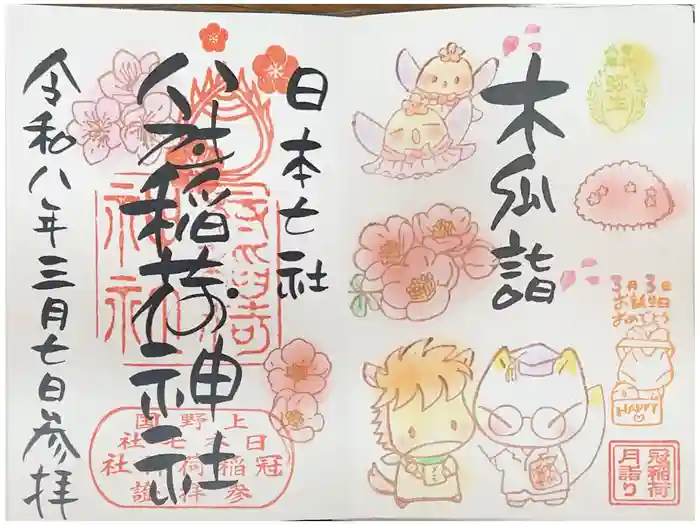 木瓜詣
弥生
3月3日
お誕生日
おめでとう
HAPPY
冠稲荷
月詣り
日本七社
冠稲荷神社
上野国
日本七社
冠稲荷社
參拝證
令和八年三月七日參拝